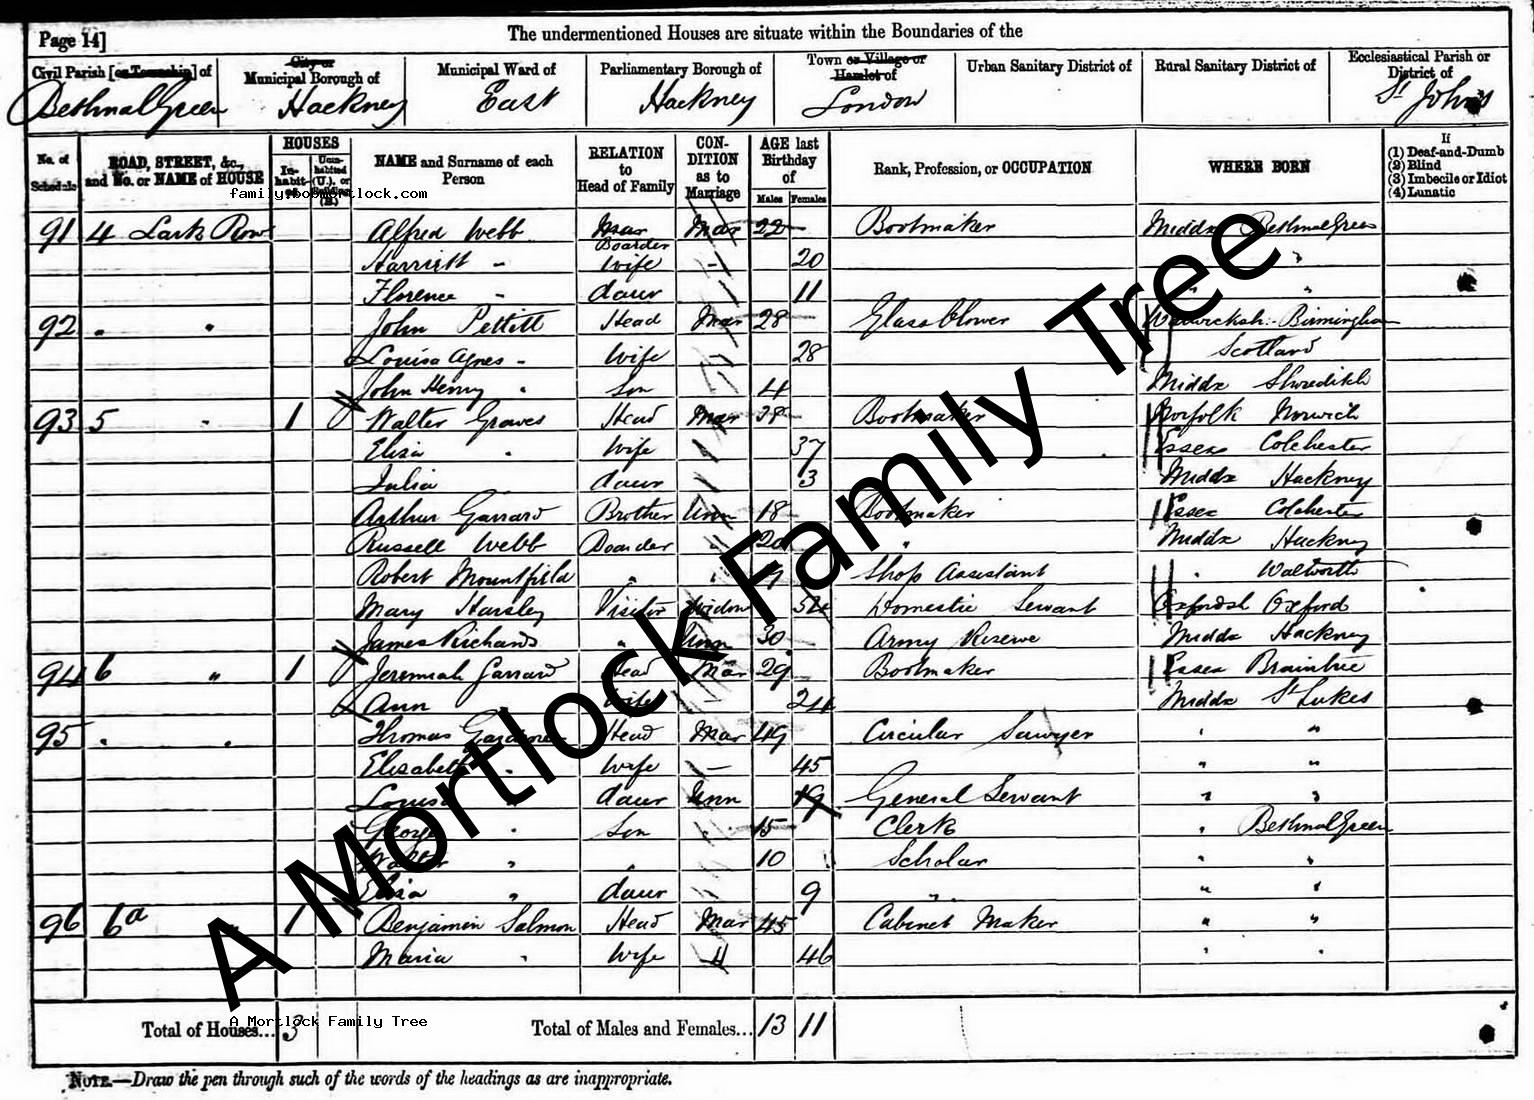 Page 14]
The undermentioned Houses are situate within the Boundaries of the
Civil Parish [or Township] of
City or Municipal Borough of
Municipal Ward of
Parliamentary Borough of
Town or Village or Hamlet of
Urban Sanitary District of
Rural Sanitary District of
Ecclesiastical Parish or District of
Bethnal Green Hackney East Hackney London St Johns
No. of Schedule
ROAD, STREET, &c., and No. or NAME of HOUSE
HOUSES
In-habit-ed
Unin-habited (U.), or Building (B.)
NAME and Surname of each Person
RELATION to Head of Family
CON-DITION as to Marriage
AGE last Birthday of
Males Females
Rank, Profession, or OCCUPATION
WHERE BORN
If
(1) Deaf-and-Dumb
(2) Blind
(3) Imbecile or Idiot
(4) Lunatic
family.bobmortlock.com
91 4 Lark Row Alfred Webb Boarder Mar 22 Bootmaker Middx Bethnal Green
Harriett " Wife - 20 "
Florence " daur 11 " "
92 " " John Pettitt Head Mar 28 Glass blower Warwicksh. Birmingham
Louisa Agnes " Wife 28 Scotland
John Henry " Son 4 Middx Shoreditch
93 5 " 1 Walter Graves Head Mar 38 Bootmaker Norfolk Norwich
Eliza " Wife 37 Essex Colchester
Julia daur 3 Middx Hackney
Arthur Garrard Brother Unm 18 Bootmaker Essex Colchester
Russell Webb Boarder " 20 " Middx Hackney
Robert Mountfield " " Shop Assistant " Walworth
Mary Harsley Visitor Widow 54 Domestic Servant Oxfordsh Oxford
James Richards " Unm 30 Army Reserve Middx Hackney
94 6 " 1 Jeremiah Garrard Head Mar 29 Bootmaker Essex Braintree
Ann Wife 24 Middx St Lukes
95 " " Thomas Gardiner Head Mar 49 Circular Sawyer " "
Elizabeth " Wife - 45 " "
Louisa " daur Unm 19 General Servant " "
George " Son " 15 Clerk " Bethnal Green
Walter " " 10 Scholar " "
Eliza " daur 9 " " "
96 6a 1 Benjamin Salmon Head Mar 45 Cabinet Maker " "
Maria " Wife " 46 " "
A Mortlock Family Tree
Total of Houses... 3 Total of Males and Females... 13 11
A Mortlock Family Tree
NOTE.—Draw the pen through such of the words of the headings as are inappropriate.